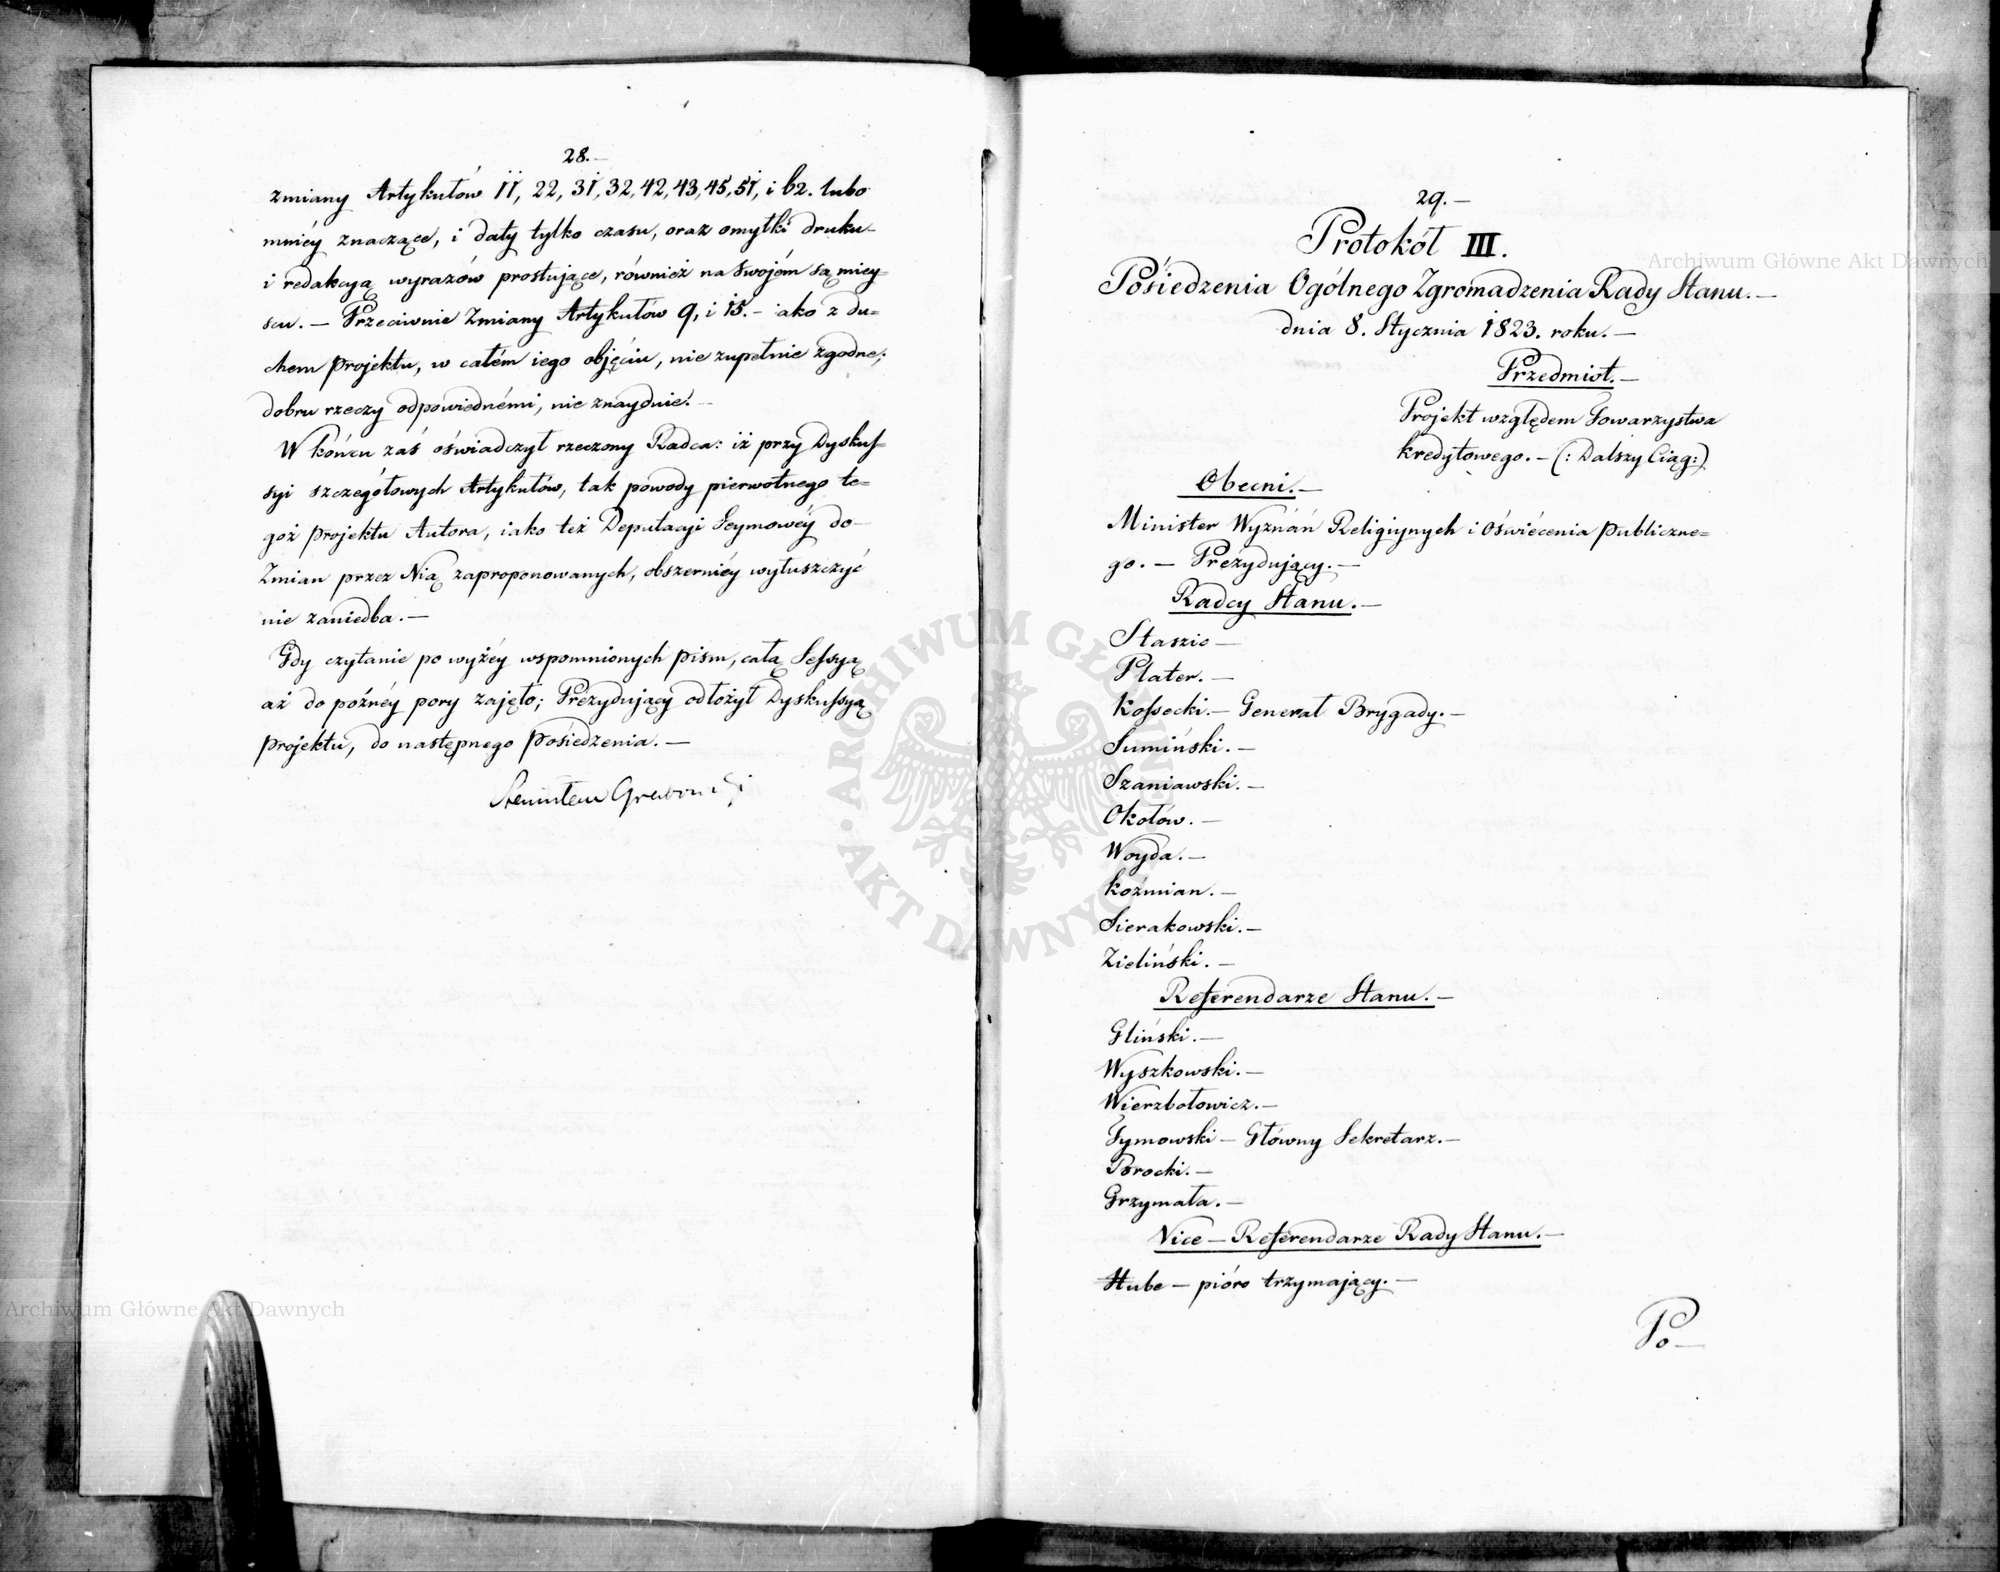 28.—
zmiany Artykułów 11, 22, 31, 32, 42, 43, 45, 51, i 62. lubo
mniéy znaczące, i daty tylko czasu, oraz omyłki druku
i redakcyą wyrazów prostujące, również na swojém są miey-
scu. — Przeciwnie Zmiany Artykułów 9, i 15. — iako z du=
chem projektu, w całém iego objęciu, nie zupełnie zgodne,
dobru rzeczy odpowiednémi, nie znayduie.
W końcu zaś oświadczył rzeczony Radca: iż przy Dyskus-
syi szczegółowych Artykułów, tak powody pierwotnego te=
goż projektu Autora, iako też Deputacyi Seymowéy do
Zmian przez Nią zaproponowanych, obszerniéy wyłuszczyć
nie zaniedba. —
Gdy czytanie po wyżéy wspomnionych pism, całą Sessyą
aż do poźnéy pory zajęło; Prezydujący odłożył Dyskussyą
projektu, do następnego posiedzenia. —
Stanisław Grabowski
29. —
Protokół III.
Posiedzenia Ogólnego Zgromadzenia Rady Stanu. —
dnia 8. Stycznia 1823. roku. —
Przedmiot. —
Projekt względem Towarzystwa
kredytowego. — (: Dalszy Ciąg :)
Obecni. —
Minister Wyznań Religiynych i Oświécenia publiczne=
go. — Prezydujący. —
Radcy Stanu. —
Staszic —
Plater. —
Kossecki. — Generał Brygady. —
Sumiński. —
Szaniawski. —
Okołów. —
Woyda. —
Koźmian. —
Sierakowski. —
Zieliński. —
Referendarze Stanu. —
Gliński. —
Wyszkowski. —
Wierzbołowicz. —
Tymowski — Główny Sekretarz. —
Brocki. —
Grzymała. —
Vice — Referendarze Rady Stanu. —
Hube — pióro trzymający. —
Po —
Archiwum Główne Akt Dawnych
Archiwum Główne Akt Dawnych
ARCHIWUM GŁÓWNE AKT DAWNYCH